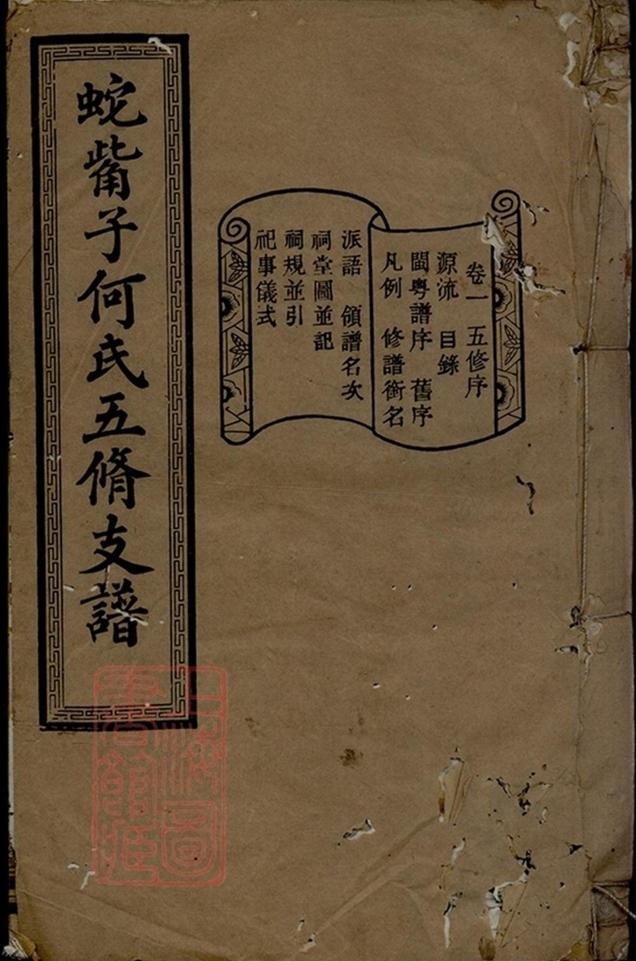 卷一 五修序
源流 目錄
閩粵譜序 舊序
凡例 修譜銜名
派語 領譜名次
祠堂圖並記
祠規並引
祀事儀式
蛇觜子何氏五脩支譜
上海圖
書館藏